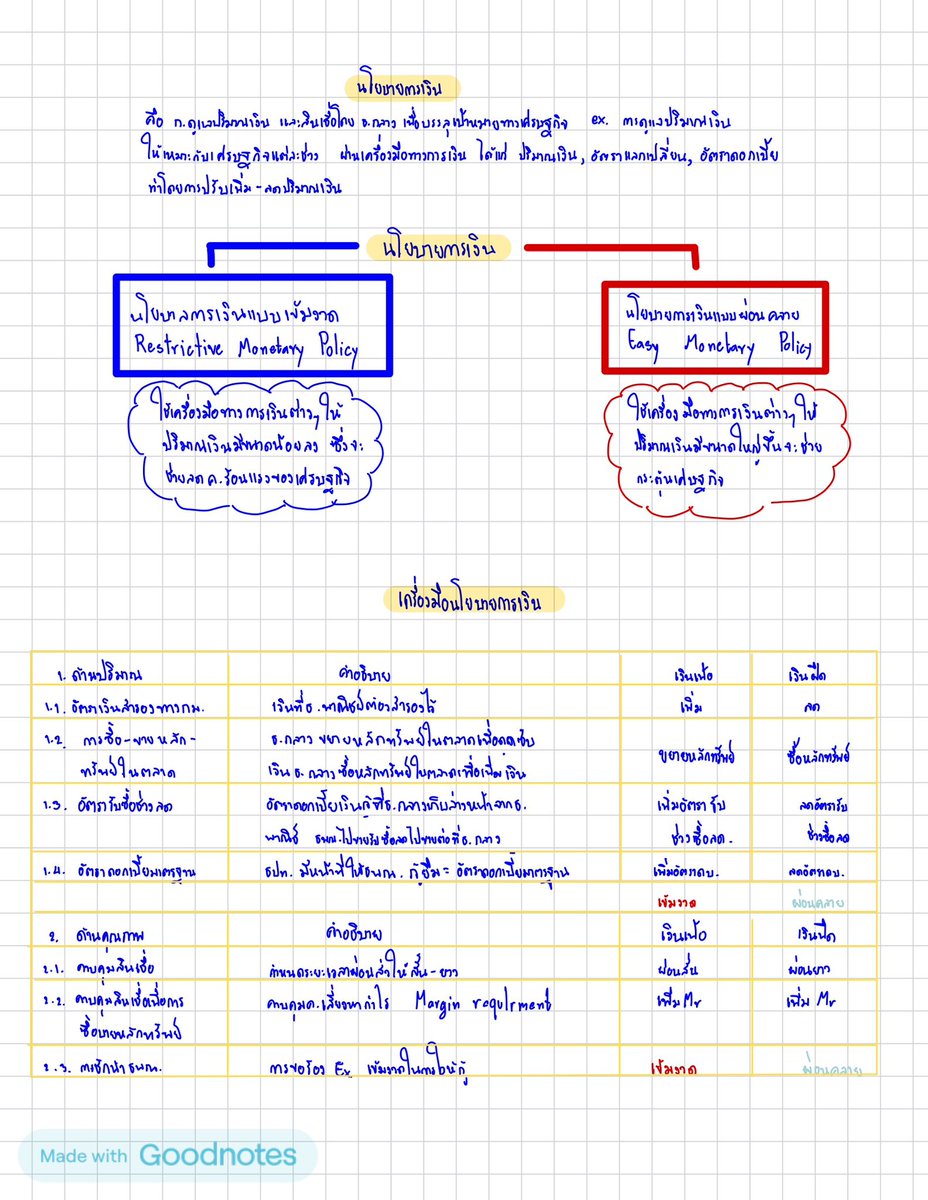 นโยบายการเงิน
คือ ก.ดูแลปริมาณเงิน และสินเชื่อโดย ธ.กลาง เพื่อบรรลุเป้าหมายทางเศรษฐกิจ ex. การดูแลปริมาณเงิน
ให้เหมาะกับเศรษฐกิจแต่ละช่วง ผ่านเครื่องมือทางการเงิน ได้แก่ ปริมาณเงิน, อัตราแลกเปลี่ยน, อัตราดอกเบี้ย
ทำโดยการปรับเพิ่ม-ลดปริมาณเงิน
นโยบายการเงิน
นโยบาลการเงินแบบเข้มงวด
Restrictive Monetary Policy
นโยบายการเงินแบบผ่อนคลาย
Easy Monetary Policy
ใช้เครื่องมือทางการเงินต่างๆ ให้
ปริมาณเงินมีขนาดน้อยลง ซึ่งจะ
ช่วยลด ค.ร้อนแรงของเศรษฐกิจ
ใช้เครื่องมือทางการเงินต่างๆ ให้
ปริมาณเงินมีขนาดใหญ่ขึ้นจะช่วย
กระตุ้นเศรษฐกิจ
เครื่องมือนโยบายการเงิน
1. ด้านปริมาณ คำอธิบาย เงินเฟ้อ เงินฝืด
1.1. อัตราเงินสำรองทางกม. เงินที่ธ.พาณิชย์ต้องสำรองไว้ เพิ่ม ลด
1.2. การซื้อ-ขายหลัก- ธ.กลาง ขายหลักทรัพย์ในตลาดเพื่อดูดซับ
ทรัพย์ในตลาด เงิน ธ.กลางซื้อหลักทรัพย์ในตลาดเพื่อเพิ่มเงิน ขายหลักทรัพย์ ซื้อหลักทรัพย์
1.3. อัตรารับซื้อช่วงลด อัตราดอกเบี้ยเงินกู้ที่ธ.กลางเก็บล่วงหน้าจากธ. เพิ่มอัตรารับ ลดอัตรารับ
พาณิชย์ ธพณ.ไปขายต่อที่ธ.กลาง ช่วงซื้อลด. ช่วงซื้อลด
1.4. อัตราดอกเบี้ยมาตรฐาน ธปท. มีหน้าที่ให้ธพณ. กู้ยืม = อัตราดอกเบี้ยมาตรฐาน เพิ่มอัตราดบ. ลดอัตราดบ.
เข้มงวด ผ่อนคลาย
2. ด้านคุณภาพ คำอธิบาย เงินเฟ้อ เงินฝืด
2.1. ควบคุมสินเชื่อ กำหนดระยะเวลาผ่อนส่งให้สั้น-ยาว ผ่อนสั้น ผ่อนยาว
2.2. ควบคุมสินเชื่อเพื่อการ ควบคุมค.เสี่ยงหากำไร Margin requirment เพิ่ม Mr เพิ่ม Mr
ซื้อขายหลักทรัพย์
2.3. การชักนำธพณ. การขอร้อง Ex เข้มงวดในการให้กู้ เข้มงวด ผ่อนคลาย
Made with Goodnotes